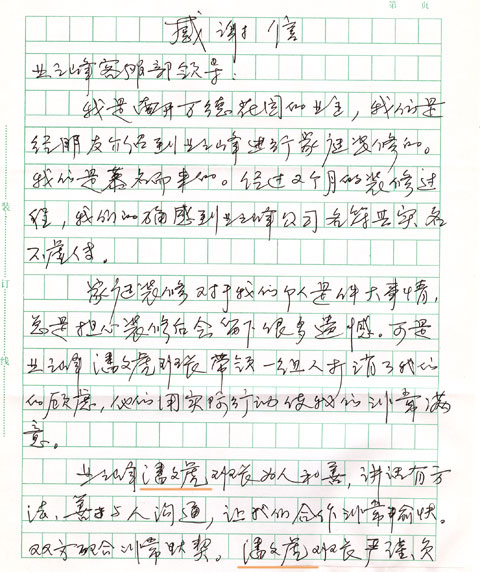 第 页
感谢信
业之峰客服部领导：
我是南开万德花园的业主，我们是
经朋友介绍到业之峰进行家庭装修的。
我们是慕名而来的。经过2个月的装修过
程，我们的确感到业之峰公司名符其实名
不虚传。
家庭装修对于我们个人是件大事情，
总是担心装修后会留下很多遗憾。可是
业之峰潘文虎队长带领一组人打消了我们
的顾虑，他们用实际行动使我们非常满
意。
业之峰潘文虎队长为人和善，讲话有方
法、善于与人沟通，让我们合作非常愉快。
双方配合非常默契。潘文虎队长严谨负
装
订
线